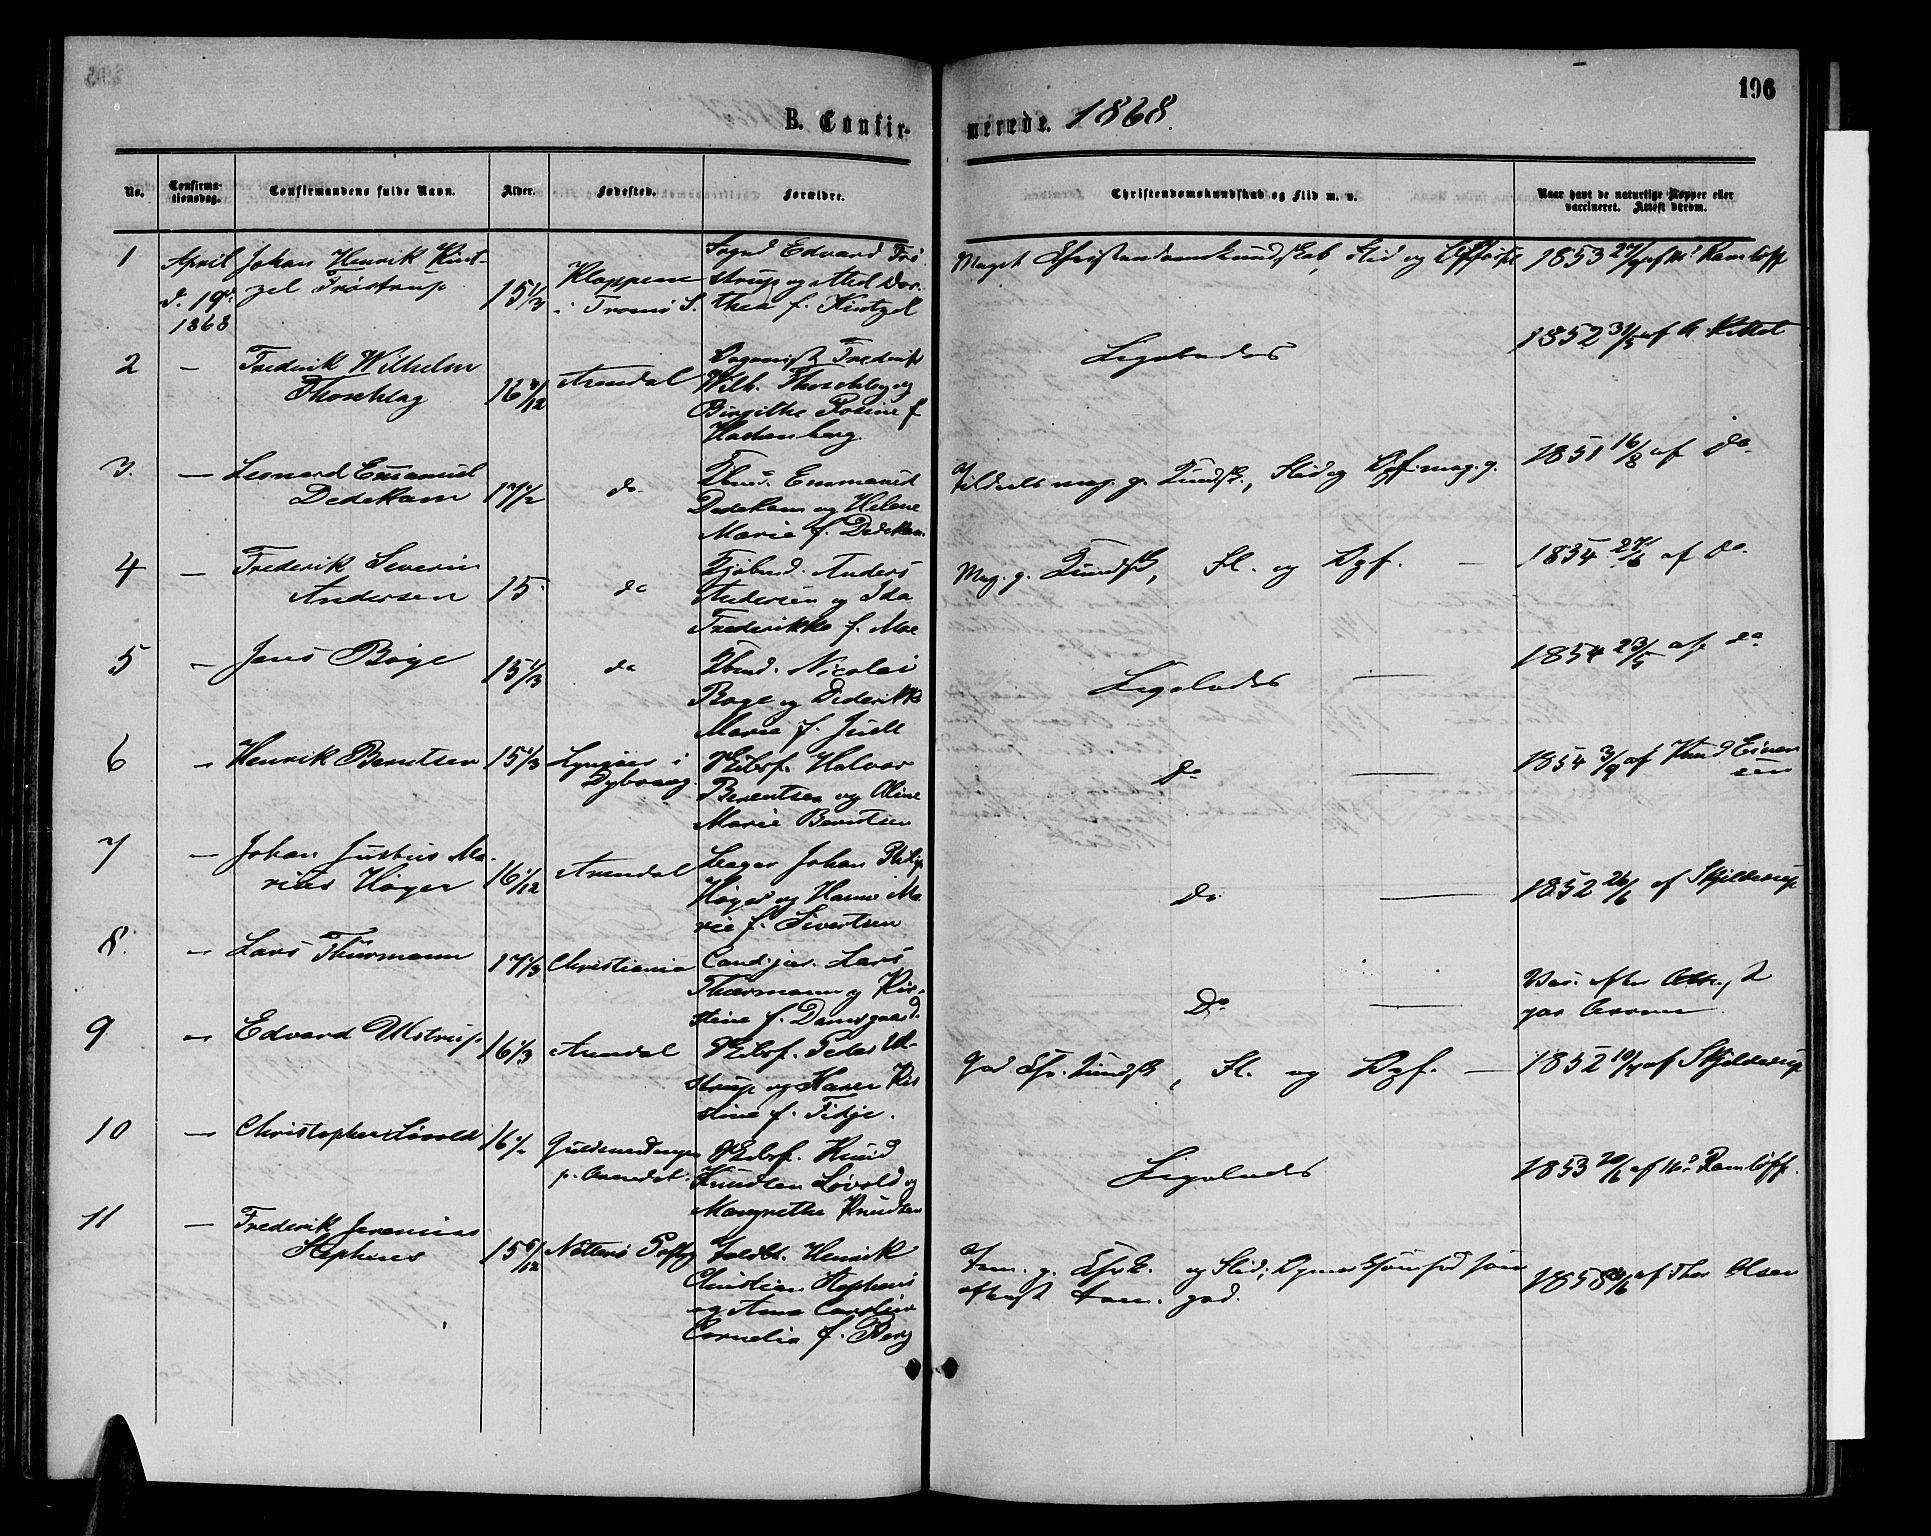 196
B. Confir-
merede. 1868.
No.
Confirma-
tionsdag.
Confirmandens fulde Navn.
Alder.
Fødested.
Forældre.
Christendomskundskab og Flid m. v.
Naar havt de naturlige Kopper eller
vaccineret. Attest derom.
1
April
d. 19de
1868
Johan Henrik Kint-
zel Frøstrup
15 1/3
Kloppene
i Tromø S.
Fogd Edvard Frø
strup og Dor-
thea f. Kintzel
Meget Christendomskundskab, Flid og
1853 27/ af Ramløff
2
—
Frederik Wilhelm
Thoschlag
16
Arendal
Organist Frederik
Wilh. Thoschlag og
Birgithe Rosine f.
Hachenberg
Ligeledes
1852 31/5 af A. Kittel
3.
—
Leonard Emanuel
Dedekam
17 1/2
do
Kbmd. Emmanuel
Dedekam og Helene
Marie f. Dedekam
Tildeels meg. g. Kundsk., Flid og Opf. meg. g.
1851 16/8 af do
4
—
Frederik Severin
Andersen
15
do
Kjøbmd. Anders
Andersen og Ida
Frederikke f. Moe
Meg. g. Kundsk., Fl. og Opf. —
1854 27/6 af do
5
—
Jens Bøge
15 1/3
do
Kbmd. Nicolai
Bøge og Diderikke
Marie f. Juell
Ligeledes —
1854 23/5 af do
6
—
Henrik Berntsen
15 1/3
Lyngøer i
Dybvaag
Skibsf. Halvor
Berentsen og Oline
Marie Berntsen
Do —
1854 3/9 af Knud Einer
sen
7
—
Johan Justus Ma-
rius Høyer
16 1/12
Arendal
Læger Johan Philip
Høyer og Hanne Ma
rie f. Sivertsen
Do —
1852 26/6 af Skjelderup
8.
—
Lars Thurmann
17 1/3
Christiania
Cand. jur. Lars
Thurmann og Kir-
stine f. Damsgaard.
Do —
Vac. efter Attest
9
—
Edvard Ulstrup
16 1/3
Arendal
Skibsf. Peder Ul-
strup og Karen Kir
stine f. Tidje.
God Chr. Kundsk, Fl. og Opf. —
1852 10/ af Skjelderup
10
—
Christopher Løvold
16 1/2
Guldsmedengen
p. Arendal.
Skibsf. Knud
Knudsen Løvold og
Margrethe Knudsen
Ligeledes
1853 20/6 af Ramløff.
11
—
Frederik Jeremias
Stephens
15 5/12
Nøtterø
Toldbt. Henrik
Christian Stephens
og Anna Caroline
Cornelia f. Berg
Tem. g. Chrk. og Flid;
tem. god.
1858 /6 af Thor Olsen